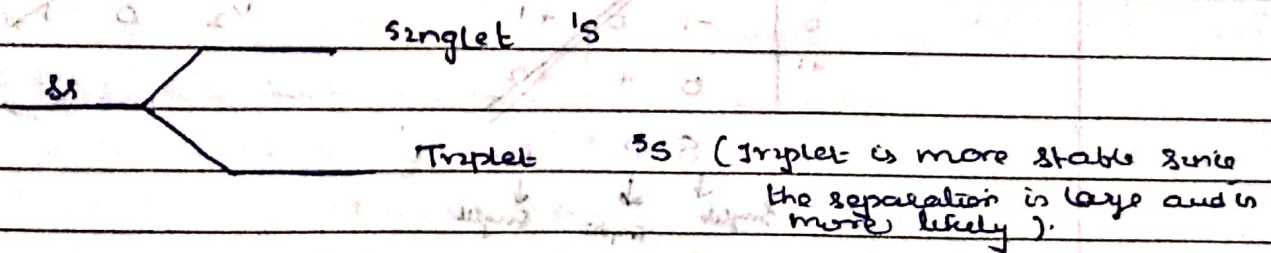 Singlet ¹S
ss
Triplet ³S (Triplet is more stable since
the separation is large and is
more likely).